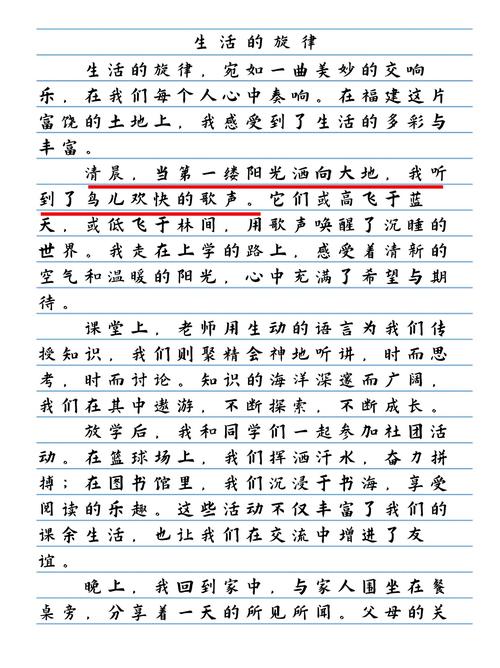 生活的旋律
生活的旋律，宛如一曲美妙的交响
乐，在我们每个人心中奏响。在福建这片
富饶的土地上，我感受到了生活的多彩与
丰富。
清晨，当第一缕阳光洒向大地，我听
到了鸟儿欢快的歌声。它们或高飞于蓝
天，或低飞于林间，用歌声唤醒了沉睡的
世界。我走在上学的路上，感受着清新的
空气和温暖的阳光，心中充满了希望与期
待。
课堂上，老师用生动的语言为我们传
授知识，我们则聚精会神地听讲，时而思
考，时而讨论。知识的海洋深邃而广阔，
我们在其中遨游，不断探索，不断成长。
放学后，我和同学们一起参加社团活
动。在篮球场上，我们挥洒汗水，奋力拼
搏；在图书馆里，我们沉浸于书海，享受
阅读的乐趣。这些活动不仅丰富了我们的
课余生活，也让我们在交流中增进了友
谊。
晚上，我回到家中，与家人围坐在餐
桌旁，分享着一天的所见所闻。父母的关